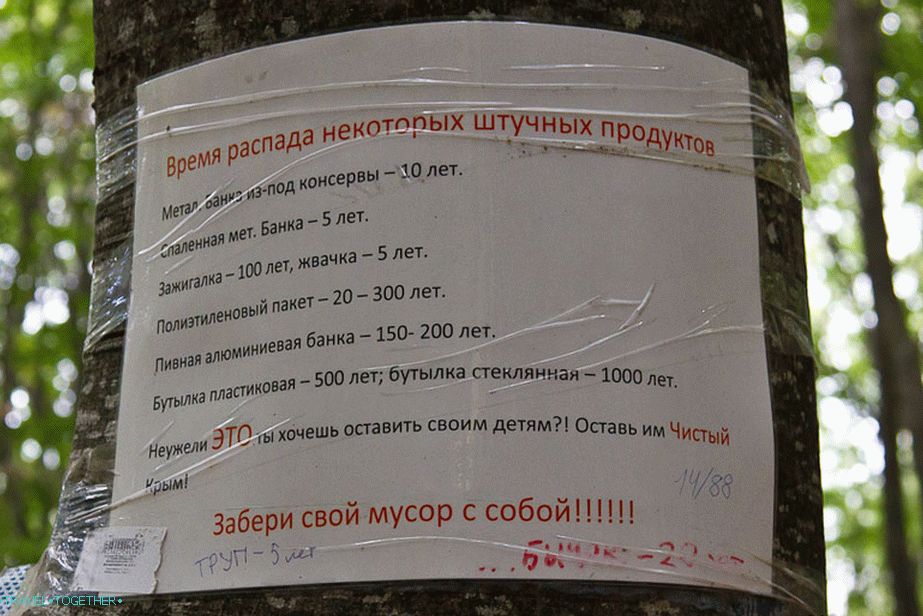 Время распада некоторых штучных продуктов
Метал. банка из-под консервы – 10 лет.
Спаленная мет. Банка – 5 лет.
Зажигалка – 100 лет, жвачка – 5 лет.
Полиэтиленовый пакет – 20 – 300 лет.
Пивная алюминиевая банка – 150- 200 лет.
Бутылка пластиковая – 500 лет; бутылка стеклянная – 1000 лет.
Неужели ЭТО ты хочешь оставить своим детям?! Оставь им Чистый
Крым!
14/88
Забери свой мусор с собой!!!!!!
ТРУП – 5 лет